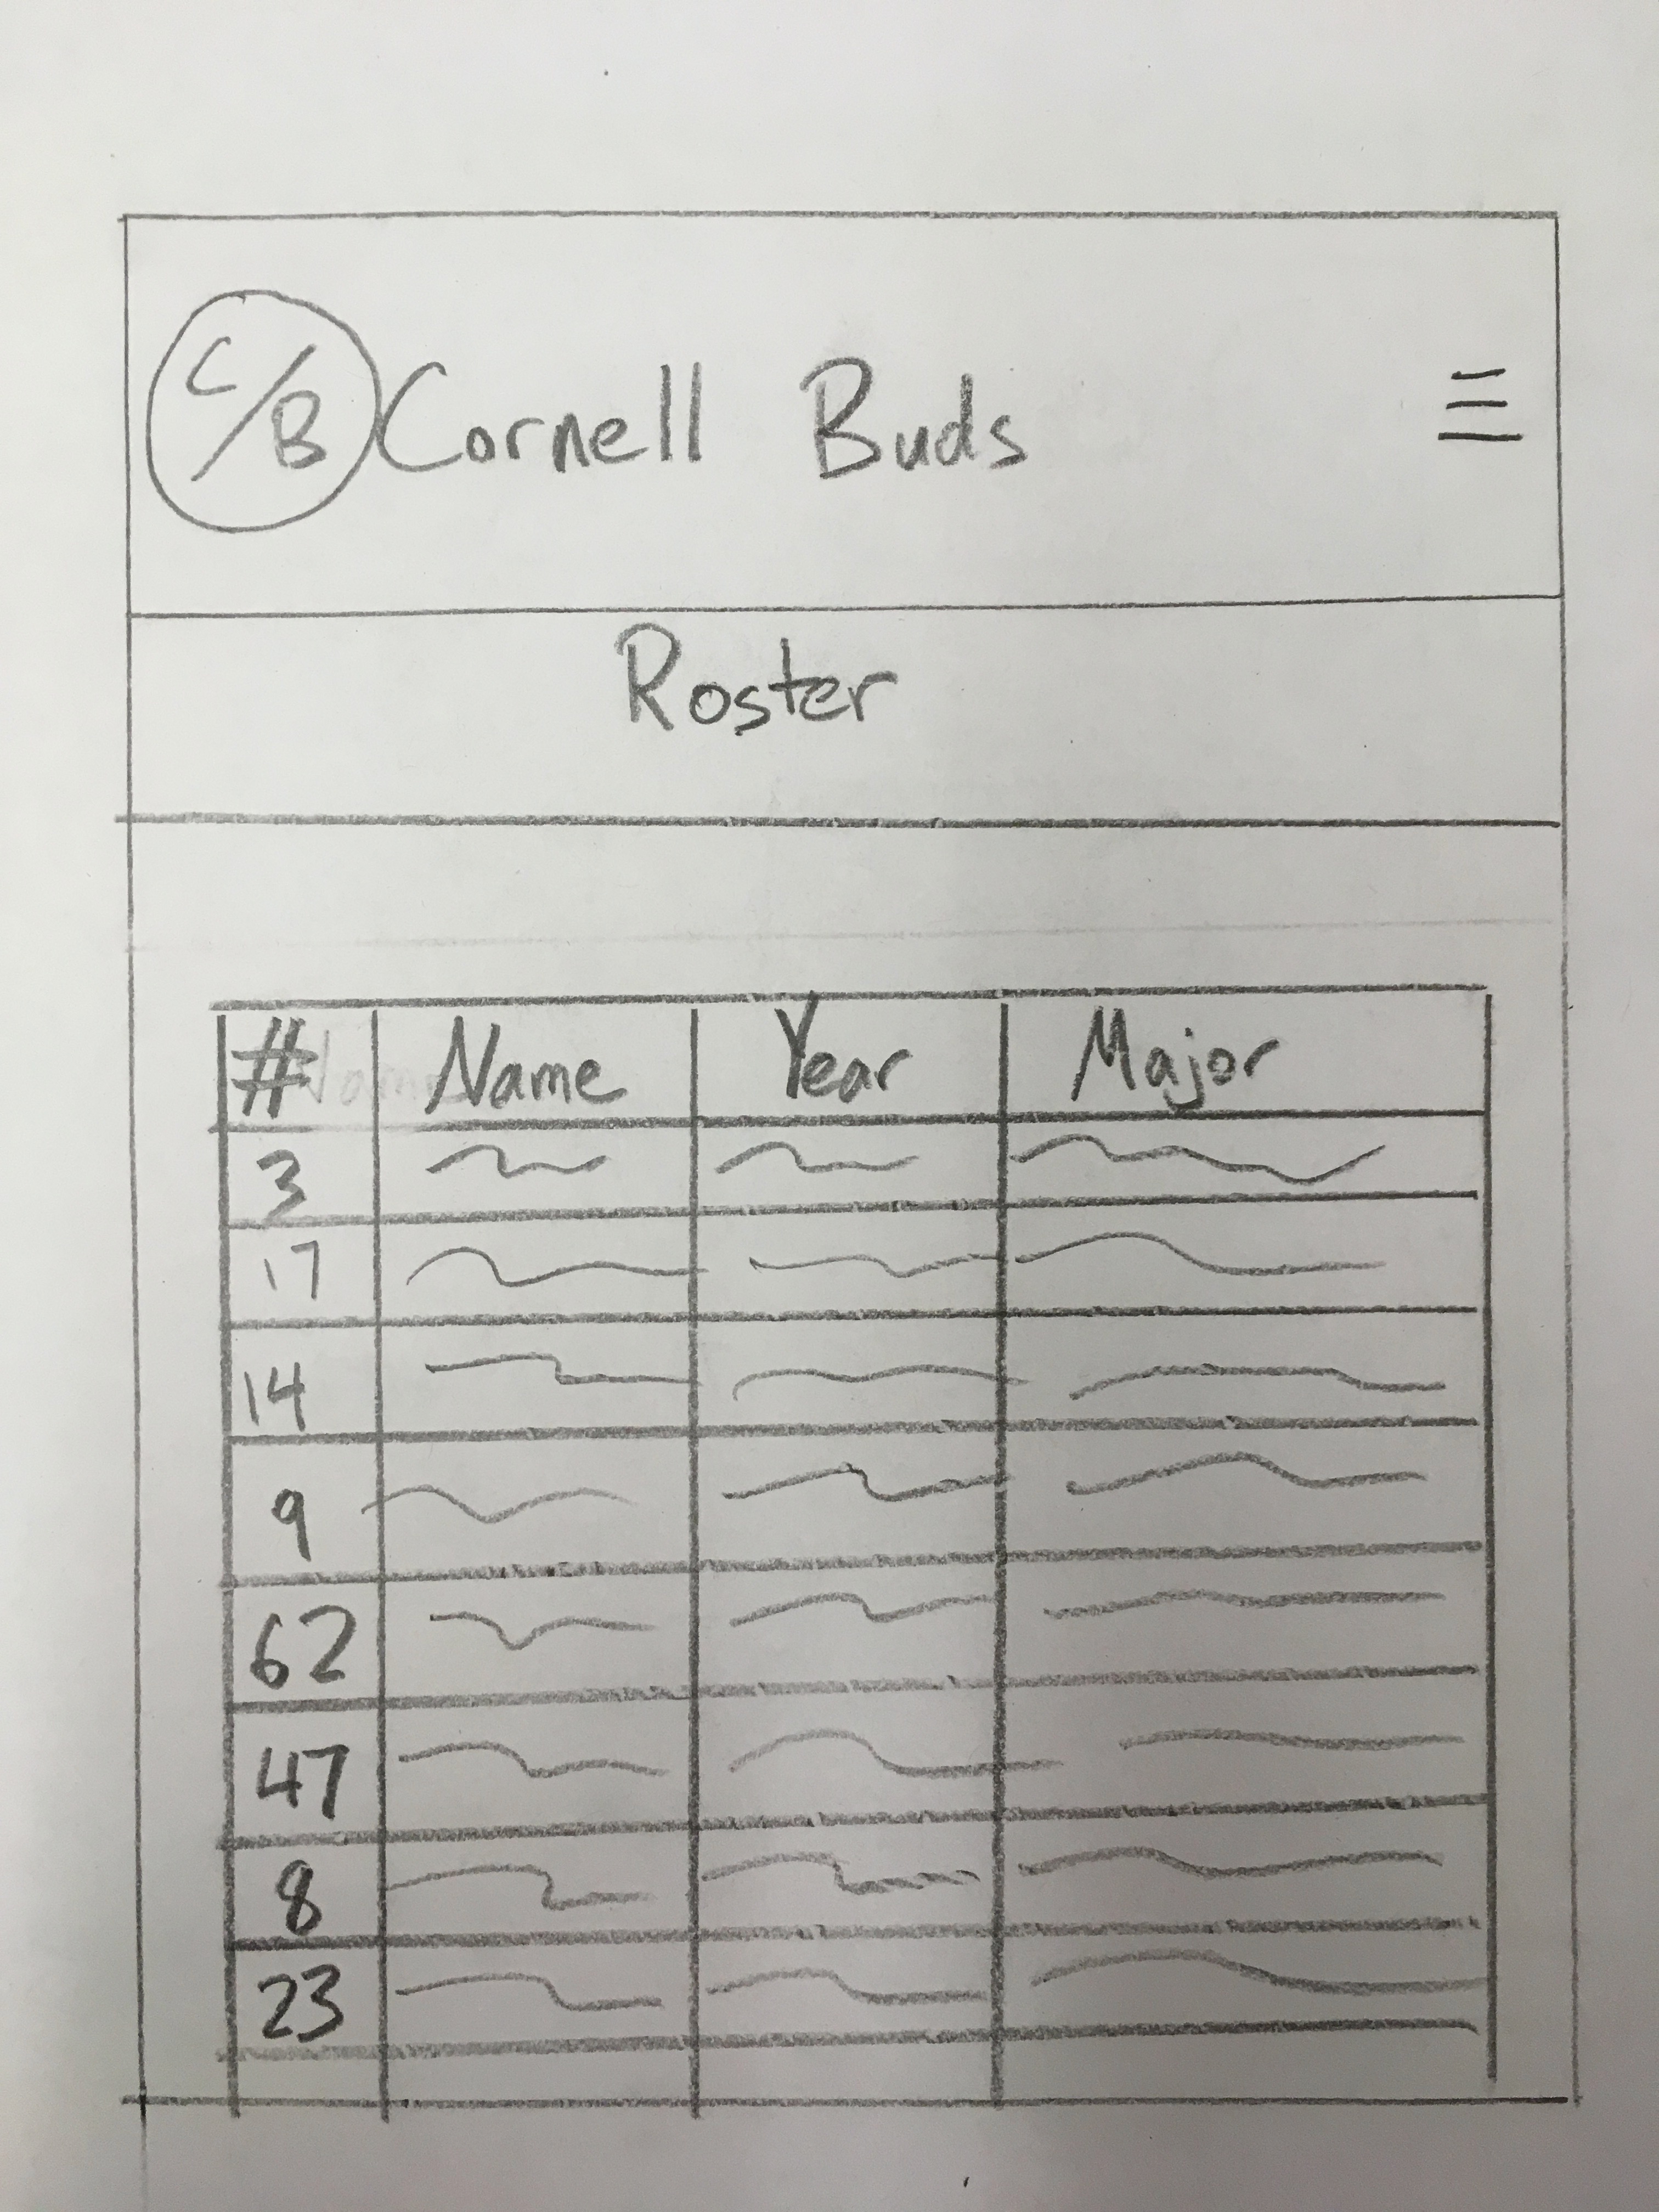 C/B Cornell Buds
Roster
# Name Year Major
3
17
14
9
62
47
8
23